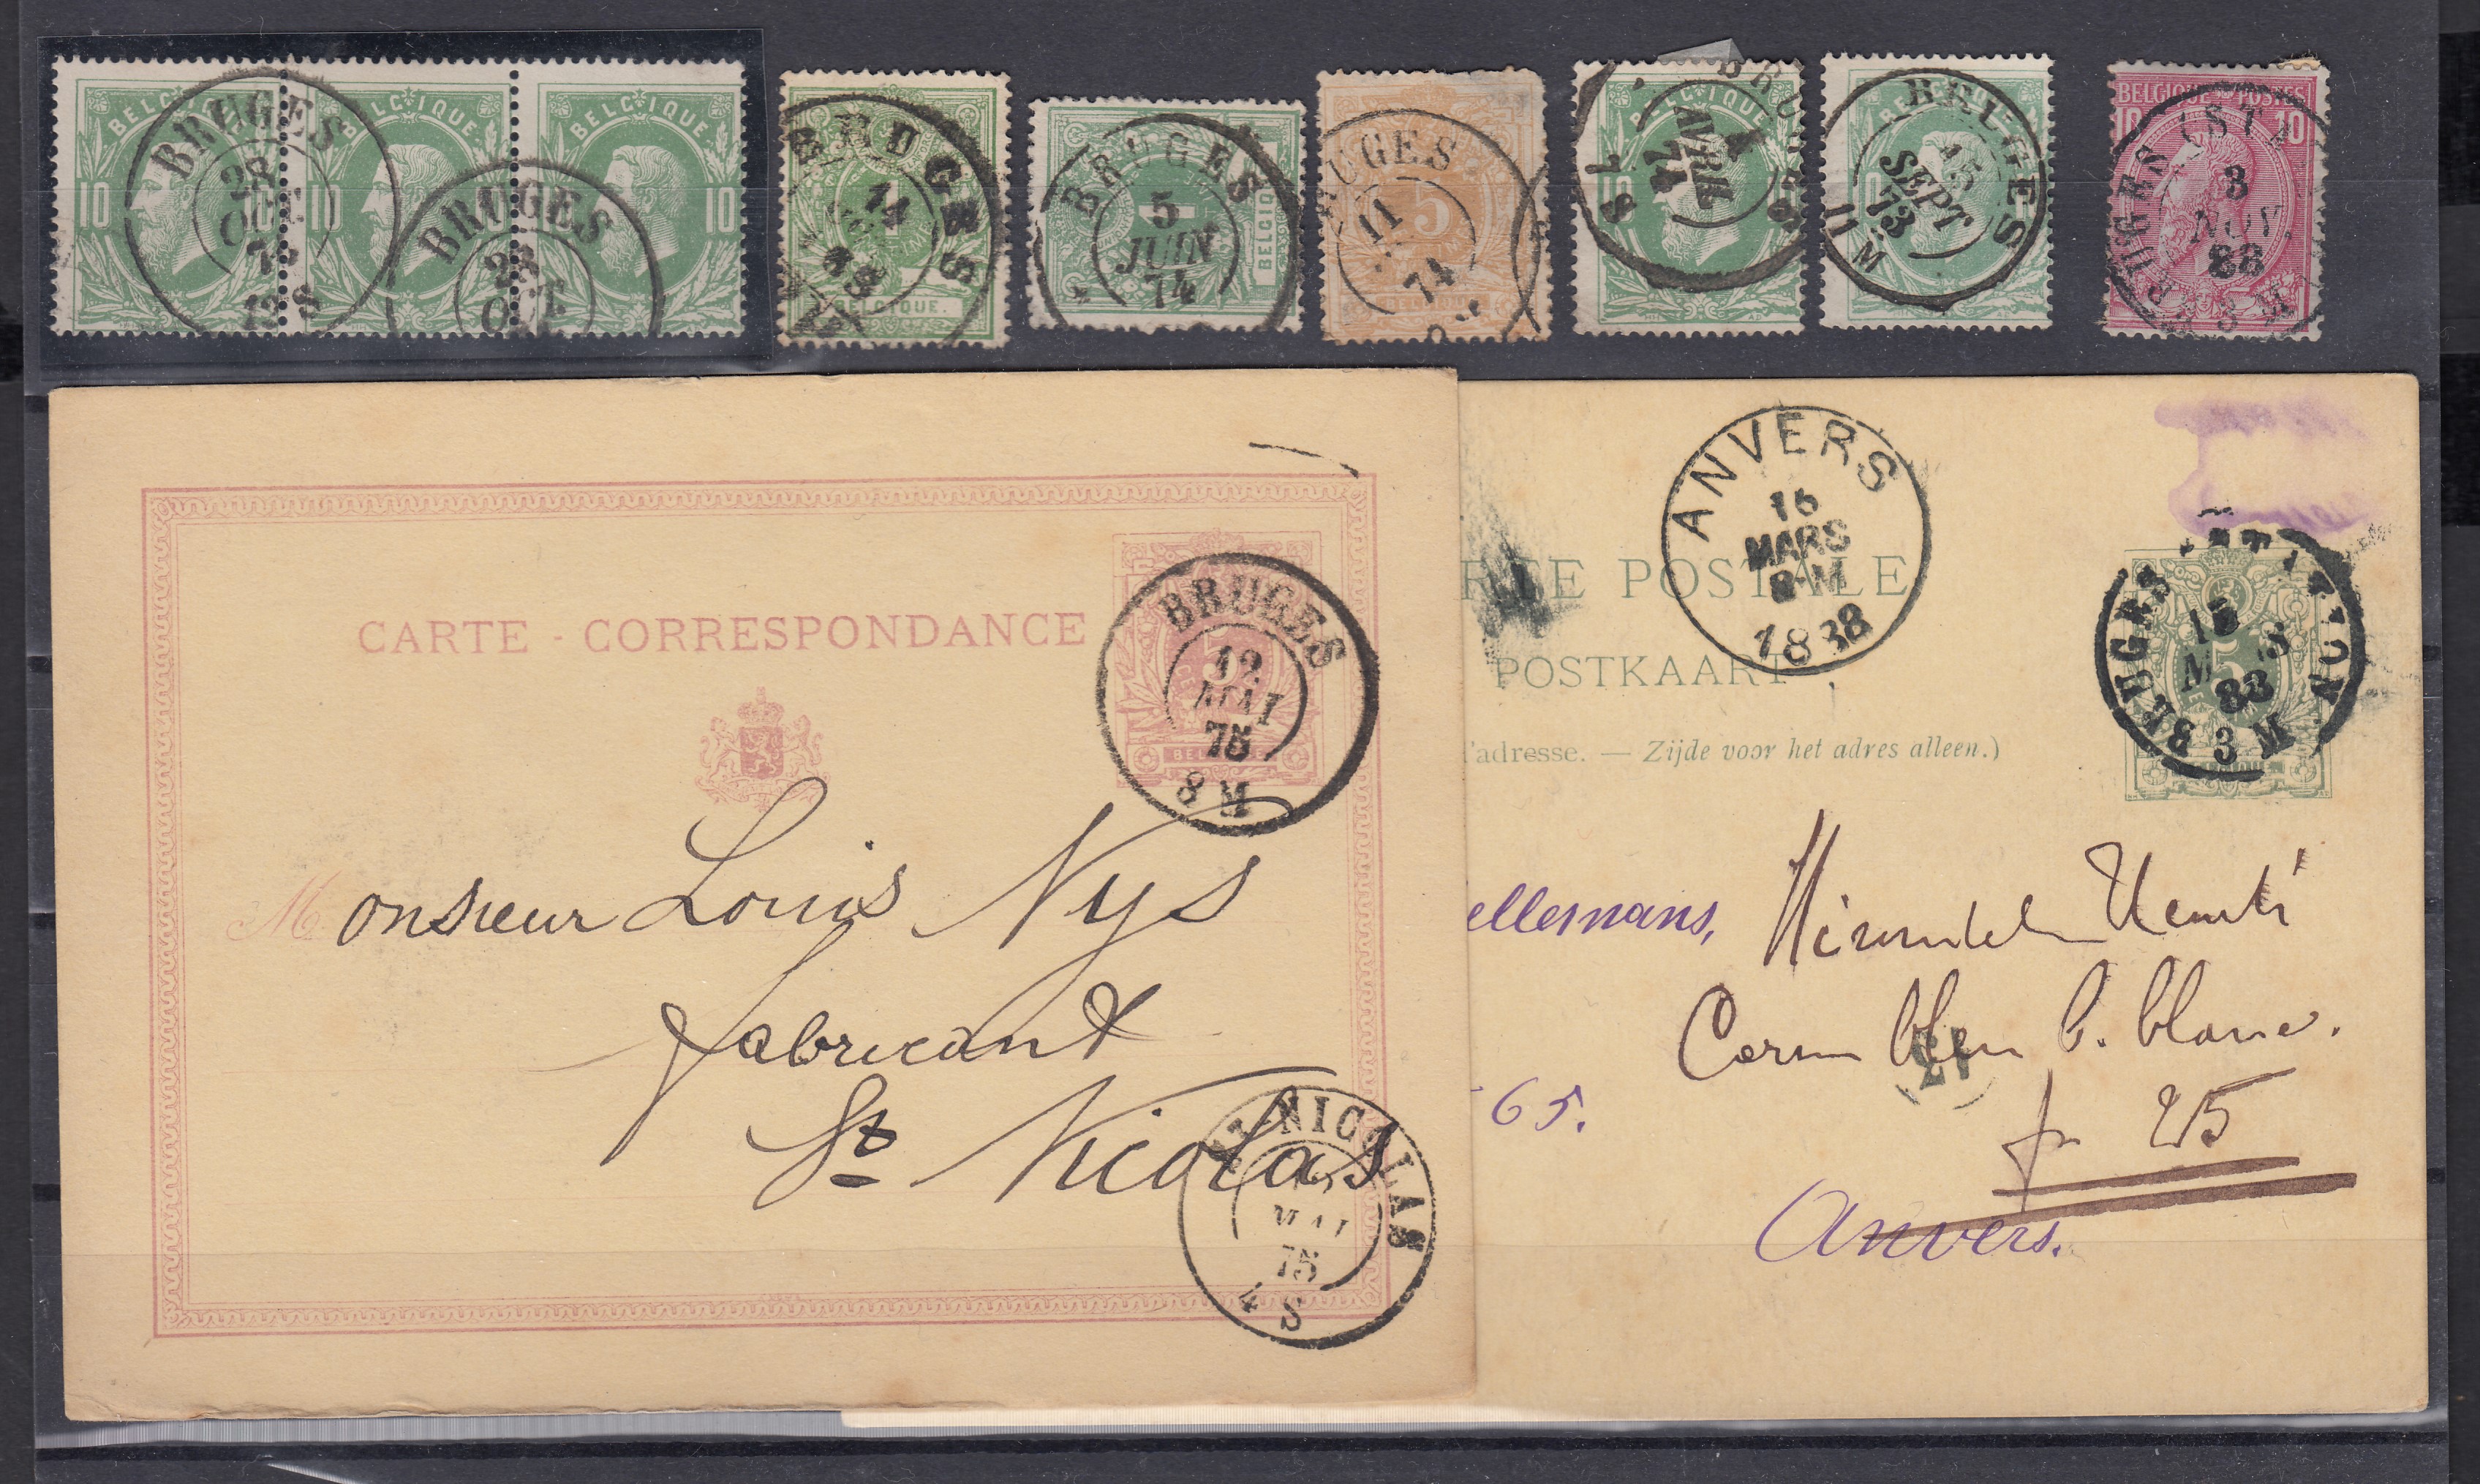 BELGIQUE BELGIQUE BELGIQUE
10 10 10
BRUGES
28
OCT
12 S
BRUGES
28
OCT
BRUGES
14
1
BELGIQUE.
BRUGES
5
JUIN
74
1
BELGIQUE
BRUGES
11
74
5
10
4
AVRIL
BRUGES
15
SEPT
73
11 M
10
BELGIQUE POSTES
10 10
BRUGES (STA
3
NOV.
88
3 M
CARTE - CORRESPONDANCE
BRUGES
12
MAI
75
8 M
5
BELGIQUE
Monsieur Louis Nys
fabricant
St Nicolas
ST-NICOLAS
MAI
75
4 S
ANVERS
16
MARS
8-M
1888
RTE POSTALE
POSTKAART
l'adresse. — Zijde voor het adres alleen.)
BRUGES (STATION)
88
3 M
5
BELGIQUE
ellemans,
bleu b. blanc.
65.
fr 25
Anvers.